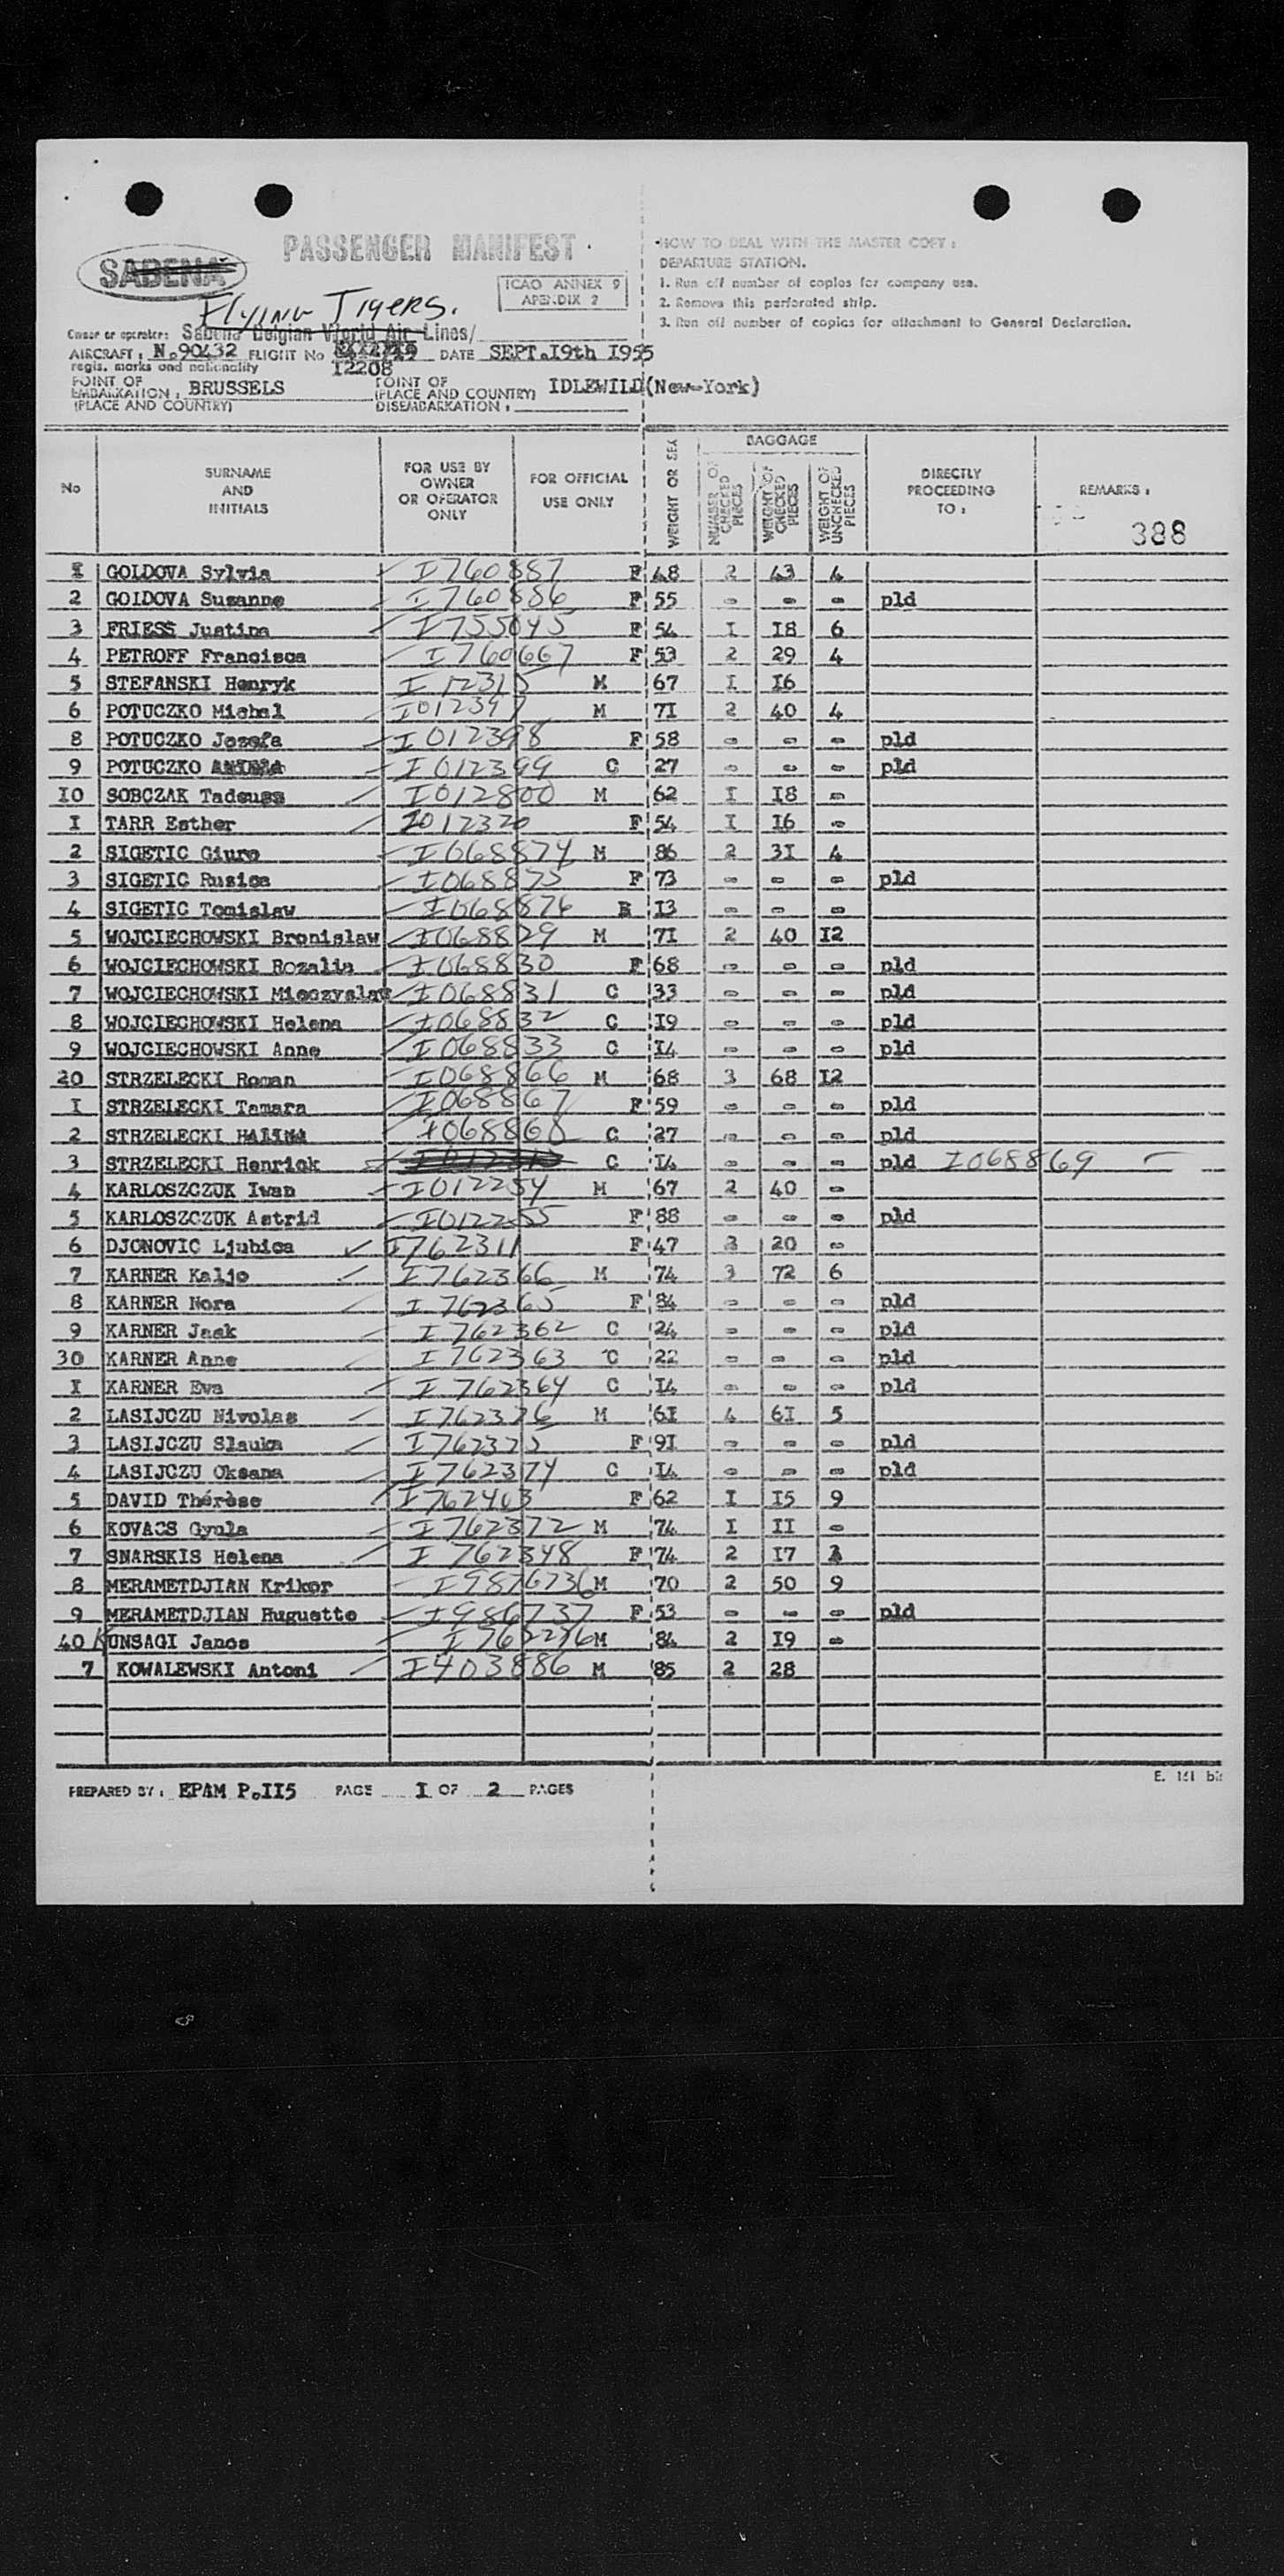 PASSENGER MANIFEST
SABENA
ICAO ANNEX 9
APENDIX 2
Flying Tigers.
Owner or operator: Sabena Belgian World Air Lines/
AIRCRAFT: N.90432 FLIGHT No DATE SEPT.I9th I955
regis. marks and nationality I2208
POINT OF EMBARKATION: BRUSSELS
(PLACE AND COUNTRY)
POINT OF (PLACE AND COUNTRY) DISEMBARKATION: IDLEWILD(New-York)
HOW TO DEAL WITH THE MASTER COPY:
DEPARTURE STATION.
1. Run off number of copies for company use.
2. Remove this perforated strip.
3. Run off number of copies for attachment to General Declaration.
No SURNAME AND INITIALS FOR USE BY OWNER OR OPERATOR ONLY FOR OFFICIAL USE ONLY WEIGHT OR SEX BAGGAGE NUMBER OF CHECKED PIECES WEIGHT OF CHECKED PIECES WEIGHT OF UNCHECKED PIECES DIRECTLY PROCEEDING TO: REMARKS:
388
I GOLDOVA Sylvia I760887 F 48 2 43 4
2 GOLDOVA Suzanne I760886 F 55 - - - pld
3 FRIESS Justina I755045 F 54 I I8 6
4 PETROFF Francisca I760667 F 53 2 29 4
5 STEFANSKI Henryk I12315 M 67 I I6
6 POTUCZKO Michal I012397 M 7I 2 40 4
8 POTUCZKO Jozefa I012398 F 58 - - - pld
9 POTUCZKO I012399 C 27 - - - pld
IO SOBCZAK Tadeusz I012800 M 62 I I8 -
I TARR Esther I012320 F 54 I I6 -
2 SIGETIC Giuro I068874 M 86 2 3I 4
3 SIGETIC Rusica I068875 F 73 - - - pld
4 SIGETIC Tomislaw I068876 B I3 - - -
5 WOJCIECHOWSKI Bronislaw I068829 M 7I 2 40 I2
6 WOJCIECHOWSKI Rozalia I068830 F 68 - - - pld
7 WOJCIECHOWSKI Mieczyslaw I068831 C 33 - - - pld
8 WOJCIECHOWSKI Helena I068832 C I9 - - - pld
9 WOJCIECHOWSKI Anne I068833 C I4 - - - pld
20 STRZELECKI Roman I068866 M 68 3 68 I2
I STRZELECKI Tamara I068867 F 59 - - - pld
2 STRZELECKI HALINA I068868 C 27 - - - pld
3 STRZELECKI Henrick C I4 - - - pld I068869
4 KARLOSZCZUK Iwan I012254 M 67 2 40 -
5 KARLOSZCZUK Astrid I012255 F 88 - - - pld
6 DJONOVIC Ljubica I762311 F 47 20 -
7 KARNER Kaljo I762366 M 74 3 72 6
8 KARNER Nora I762365 F 84 - - - pld
9 KARNER Jaak I762362 C 24 - - - pld
30 KARNER Anne I762363 C 22 - - - pld
I KARNER Eva I762364 C I4 - - - pld
2 LASIJCZU Nivolas I762376 M 6I 4 6I 5
3 LASIJCZU Slauka I762375 F 9I - - - pld
4 LASIJCZU Oksana I762374 C I4 - - - pld
5 DAVID Thérèse I762403 F 62 I I5 9
6 KOVACS Gyula I762372 M 74 I II -
7 SNARSKIS Helena I762348 F 74 2 I7
8 MERAMETDJIAN Krikor I9876736 M 70 2 50 9
9 MERAMETDJIAN Huguette I986737 F 53 - - - pld
40 KUNSAGI Janos I762276 M 84 2 I9 -
7 KOWALEWSKI Antoni I403886 M 85 2 28
PREPARED BY: EPAM P.II5 PAGE I OF 2 PAGES
E. 161 bis